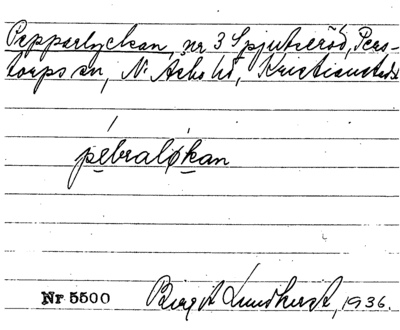 Pepparlyckan, nr 3 Spjutseröd, Pers-
torps sn, N. Åsbo hd, Kristianstads
pebraløkan
Nr 5500 Birgit Lundkvist, 1936.